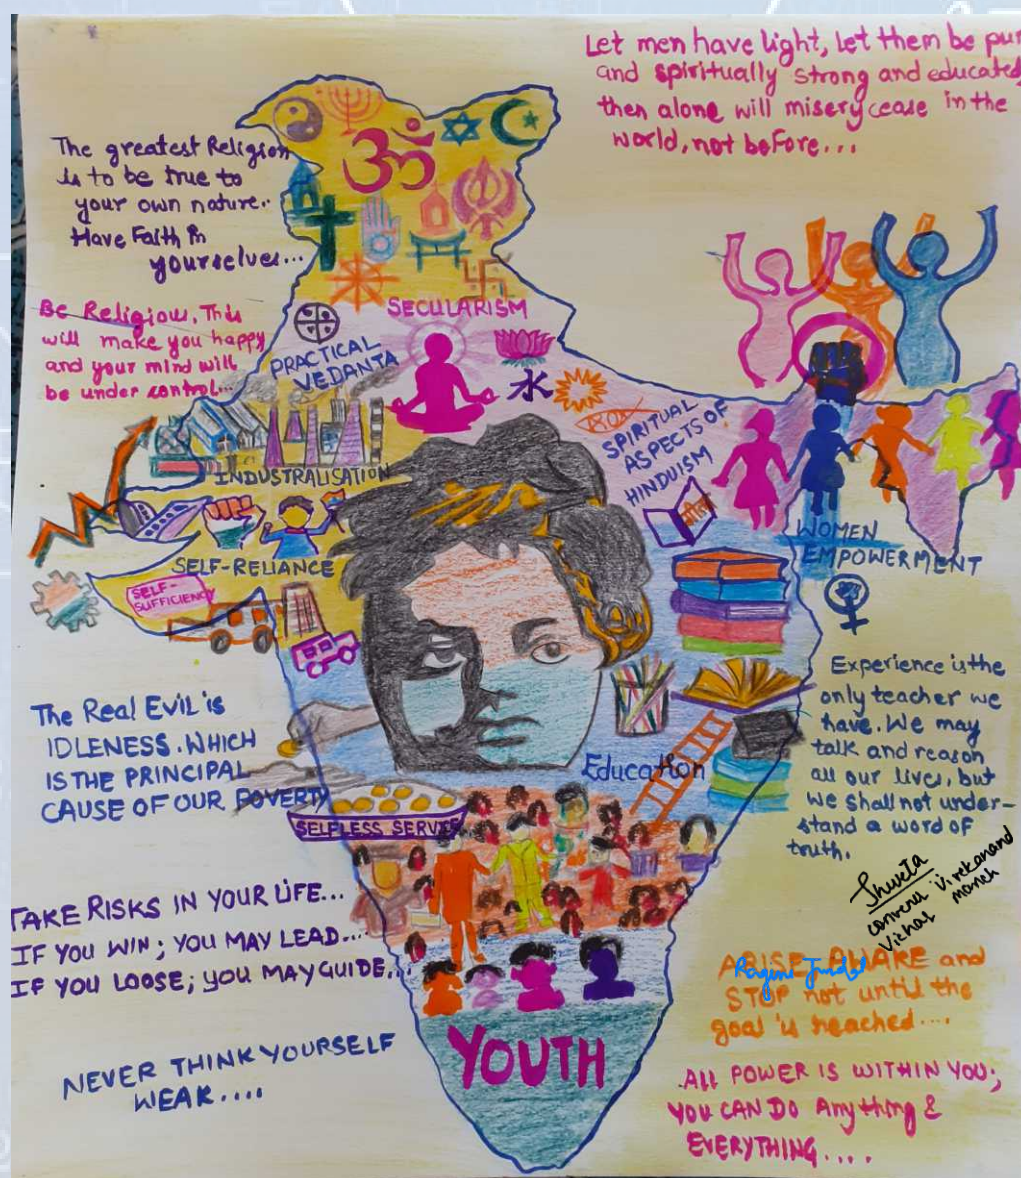 Let men have light, Let them be pur
and spiritually strong and educated,
then alone will misery cease in the
world, not before...
The greatest Religion
is to be true to
your own nature..
Have Faith in
yourselves...
Be Religious, This
will make you happy
and your mind will
be under control...
SECULARISM
PRACTICAL
VEDANTA
SPIRITUAL
ASPECTS OF
HINDUISM
INDUSTRALISATION
SELF-RELIANCE
SELF-
SUFFICIENCY
WOMEN
EMPOWERMENT
Experience is the
only teacher we
have. We may
talk and reason
all our lives, but
we shall not under-
stand a word of
truth.
The Real Evil is
IDLENESS. WHICH
IS THE PRINCIPAL
CAUSE OF OUR POVERTY
Education
SELFLESS SERVICE
Shweta
Vivekanand
Vichar manch
TAKE RISKS IN YOUR LIFE...
IF YOU WIN; YOU MAY LEAD...
IF YOU LOOSE; YOU MAY GUIDE...
ARISE, AWAKE and
STOP not until the
goal is reached....
NEVER THINK YOURSELF
WEAK....
YOUTH
ALL POWER IS WITHIN YOU;
YOU CAN DO Anything &
EVERYTHING....